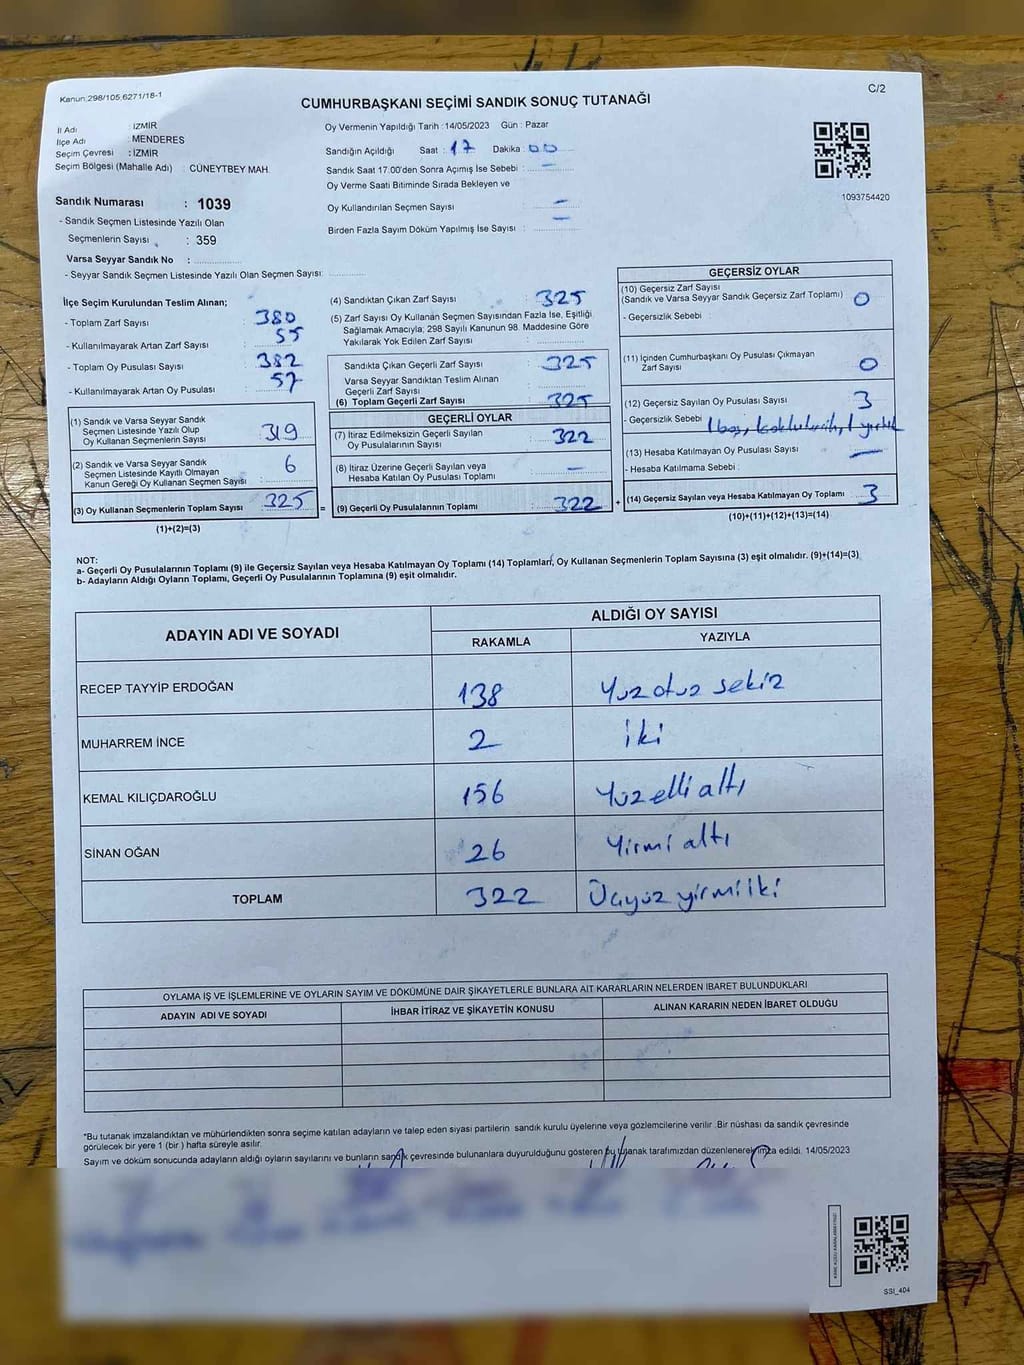 Kanun:298/105,6271/18-1
C/2
CUMHURBAŞKANI SEÇİMİ SANDIK SONUÇ TUTANAĞI
İl Adı : İZMİR
İlçe Adı : MENDERES
Seçim Çevresi : İZMİR
Seçim Bölgesi (Mahalle Adı) : CÜNEYTBEY MAH.
Oy Vermenin Yapıldığı Tarih : 14/05/2023 Gün : Pazar
Sandığın Açıldığı Saat : 17 Dakika : 00
Sandık Saat 17:00'den Sonra Açılmış İse Sebebi : —
Oy Verme Saati Bitiminde Sırada Bekleyen ve
Oy Kullandırılan Seçmen Sayısı —
Birden Fazla Sayım Döküm Yapılmış İse Sayısı : —
1093754420
Sandık Numarası : 1039
- Sandık Seçmen Listesinde Yazılı Olan
Seçmenlerin Sayısı : 359
Varsa Seyyar Sandık No :
- Seyyar Sandık Seçmen Listesinde Yazılı Olan Seçmen Sayısı:
İlçe Seçim Kurulundan Teslim Alınan;
- Toplam Zarf Sayısı : 380
- Kullanılmayarak Artan Zarf Sayısı : 55
- Toplam Oy Pusulası Sayısı : 382
- Kullanılmayarak Artan Oy Pusulası : 57
(1) Sandık ve Varsa Seyyar Sandık
Seçmen Listesinde Yazılı Olup
Oy Kullanan Seçmenlerin Sayısı 319
(2) Sandık ve Varsa Seyyar Sandık
Seçmen Listesinde Kayıtlı Olmayan
Kanun Gereği Oy Kullanan Seçmen Sayısı 6
(3) Oy Kullanan Seçmenlerin Toplam Sayısı 325
(1)+(2)=(3)
(4) Sandıktan Çıkan Zarf Sayısı : 325
(5) Zarf Sayısı Oy Kullanan Seçmen Sayısından Fazla İse, Eşitliği
Sağlamak Amacıyla; 298 Sayılı Kanunun 98. Maddesine Göre
Yakılarak Yok Edilen Zarf Sayısı :
Sandıkta Çıkan Geçerli Zarf Sayısı : 325
Varsa Seyyar Sandıktan Teslim Alınan
Geçerli Zarf Sayısı
(6) Toplam Geçerli Zarf Sayısı : 325
GEÇERLİ OYLAR
(7) İtiraz Edilmeksizin Geçerli Sayılan
Oy Pusulalarının Sayısı : 322
(8) İtiraz Üzerine Geçerli Sayılan veya
Hesaba Katılan Oy Pusulası Toplamı : —
(9) Geçerli Oy Pusulalarının Toplamı : 322
GEÇERSİZ OYLAR
(10) Geçersiz Zarf Sayısı
(Sandık ve Varsa Seyyar Sandık Geçersiz Zarf Toplamı) 0
- Geçersizlik Sebebi :
(11) İçinden Cumhurbaşkanı Oy Pusulası Çıkmayan
Zarf Sayısı 0
(12) Geçersiz Sayılan Oy Pusulası Sayısı 3
- Geçersizlik Sebebi
(13) Hesaba Katılmayan Oy Pusulası Sayısı —
- Hesaba Katılmama Sebebi :
(14) Geçersiz Sayılan veya Hesaba Katılmayan Oy Toplamı 3
(10)+(11)+(12)+(13)=(14)
NOT:
a- Geçerli Oy Pusulalarının Toplamı (9) ile Geçersiz Sayılan veya Hesaba Katılmayan Oy Toplamı (14) Toplamları, Oy Kullanan Seçmenlerin Toplam Sayısına (3) eşit olmalıdır. (9)+(14)=(3)
b- Adayların Aldığı Oyların Toplamı, Geçerli Oy Pusulalarının Toplamına (9) eşit olmalıdır.
ADAYIN ADI VE SOYADI
ALDIĞI OY SAYISI
RAKAMLA YAZIYLA
RECEP TAYYİP ERDOĞAN 138 Yüz otuz sekiz
MUHARREM İNCE 2 iki
KEMAL KILIÇDAROĞLU 156 Yüz elli altı
SİNAN OĞAN 26 Yirmi altı
TOPLAM 322 Üçyüz yirmi iki
OYLAMA İŞ VE İŞLEMLERİNE VE OYLARIN SAYIM VE DÖKÜMÜNE DAİR ŞİKAYETLERLE BUNLARA AİT KARARLARIN NELERDEN İBARET BULUNDUKLARI
ADAYIN ADI VE SOYADI İHBAR İTİRAZ VE ŞİKAYETİN KONUSU ALINAN KARARIN NEDEN İBARET OLDUĞU
*Bu tutanak imzalandıktan ve mühürlendikten sonra seçime katılan adayların ve talep eden siyasi partilerin sandık kurulu üyelerine veya gözlemcilerine verilir .Bir nüshası da sandık çevresinde
görülecek bir yere 1 (bir ) hafta süreyle asılır.
Sayım ve döküm sonucunda adayların aldığı oyların sayılarını ve bunların sandık çevresinde bulunanlara duyurulduğunu gösteren bu tutanak tarafımızdan düzenlenerek imza edildi. 14/05/2023
SSI_404